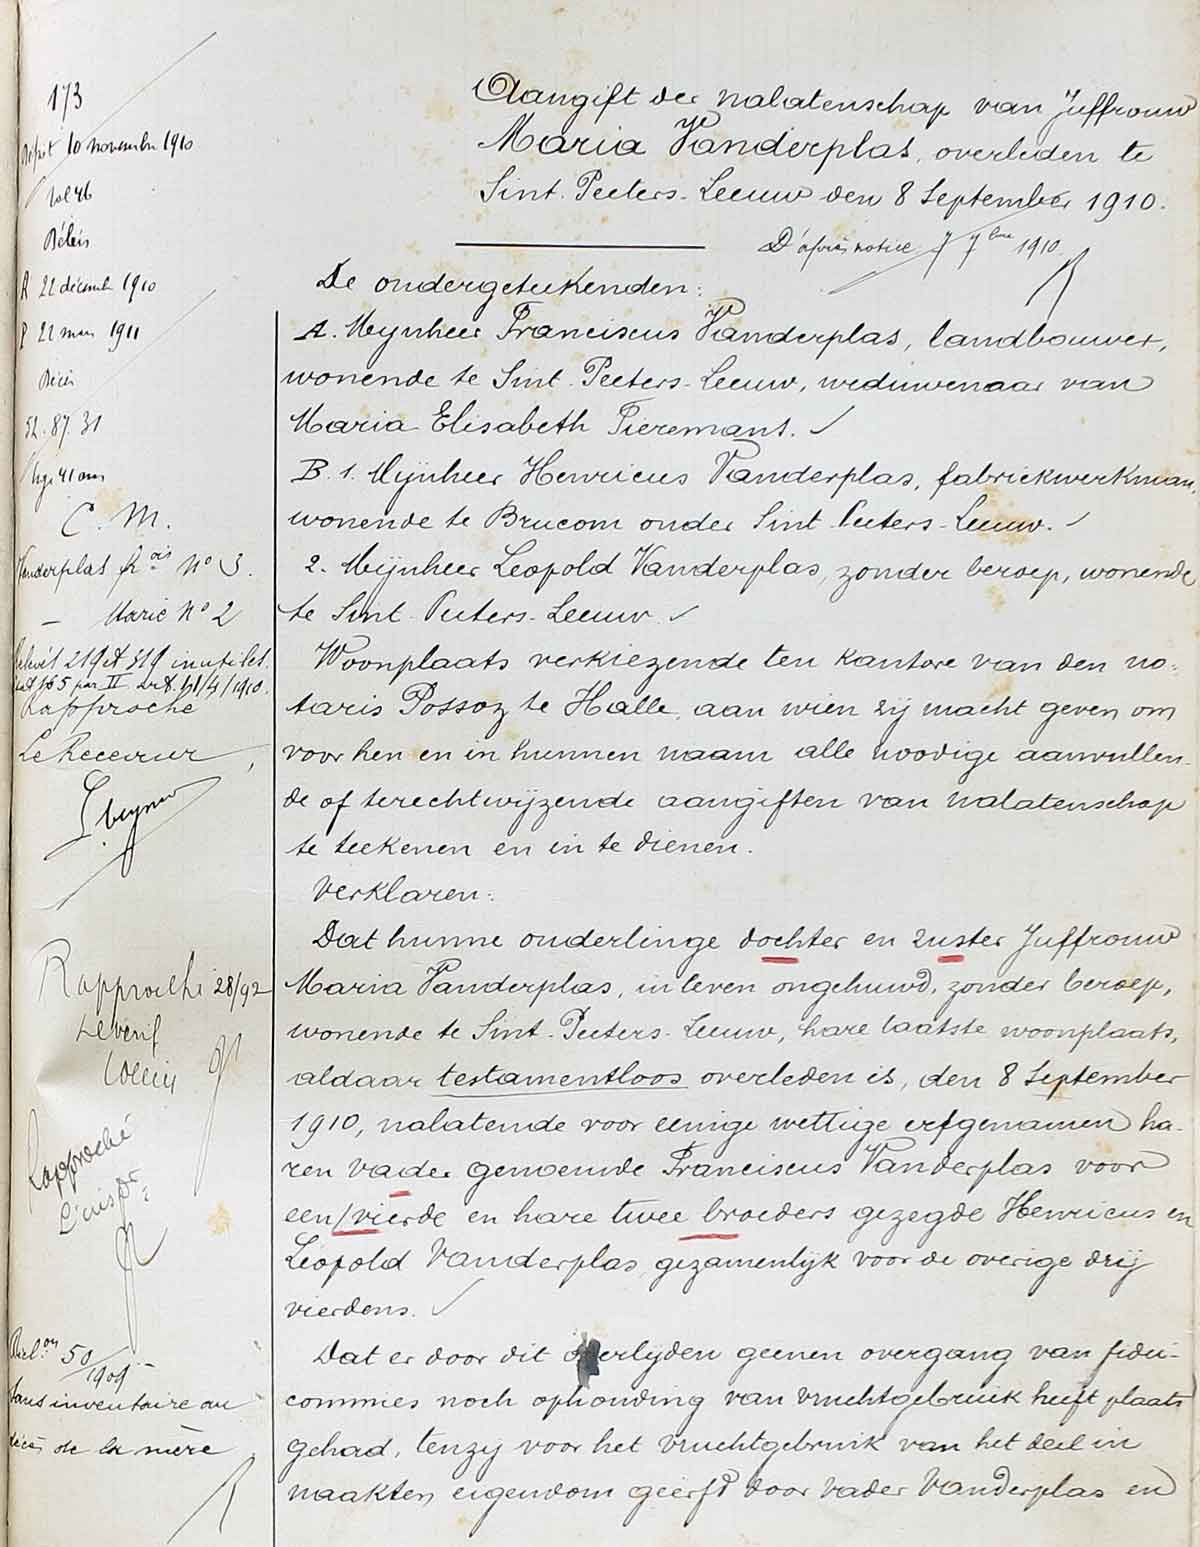 173
10 novembre 1910
Vol 46
Délais
A 22 décembre 1910
P 22 mars 1911
Décès
52. 87. 31
Age 41 ans
C. M.
Vanderplas fr ois No 3.
— Marie No 2
inutiles
Rapproché
Le Receveur
Rapproché 28/92
Le verif
Rapproché
L'insp r
50/1909
Sans inventaire au
décès de la mère
Aangift der nalatenschap van Juffrouw
Maria Vanderplas, overleden te
Sint-Peeters-Leeuw den 8 September 1910.
D'après notice 7 7bre 1910
De ondergeteekenden:
A. Mynheer Franciscus Vanderplas, landbouwer,
wonende te Sint-Peeters-Leeuw, weduwenaar van
Maria Elisabeth Tieremans. ✓
B. 1. Mijnheer Henricus Vanderplas, fabriekwerkman,
wonende te Brucom onder Sint Peeters-Leeuw. ✓
2. Mijnheer Leopold Vanderplas, zonder beroep, wonende
te Sint Peeters-Leeuw. ✓
Woonplaats verkiezende ten kantore van den no-
taris Possoz te Halle, aan wien zij macht geven om
voor hen en in hunnen naam alle noodige aanvullen-
de of terechtwijzende aangiften van nalatenschap
te teekenen en in te dienen.
Verklaren:
Dat hunne onderlinge dochter en zuster Juffrouw
Maria Vanderplas, in leven ongehuwd, zonder beroep,
wonende te Sint-Peeters-Leeuw, hare laatste woonplaats,
aldaar testamentloos overleden is, den 8 September
1910, nalatende voor eenige wettige erfgenamen ha-
ren vader genoemde Franciscus Vanderplas voor
een/vierde en hare twee broeders gezegde Henricus en
Leopold Vanderplas gezamenlijk voor de overige drij
vierdens. ✓
Dat er door dit overlijden geenen overgang van fidei-
commies noch ophouding van vruchtgebruik heeft plaats
gehad, tenzy voor het vruchtgebruik van het deel in
naakten eigendom geërfd door vader Vanderplas en